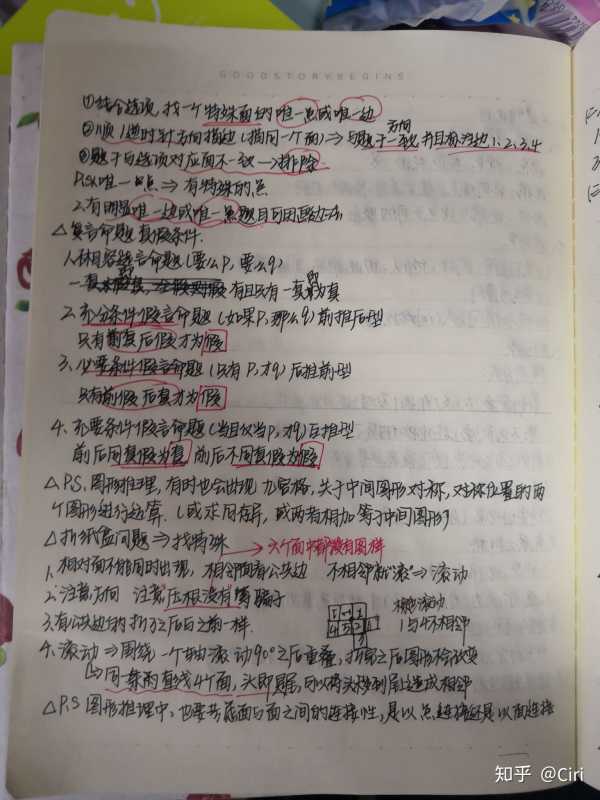 GOODSTORYBEGINS
①结合选项,找一个特殊面的唯一点或唯一边
②顺/逆时针方向描边(描同一个面)⇒与题干方向一致并且标为边1、2、3、4
③题干与选项对应面不一致→排除
P.S.唯一点⇒有特殊的点
2.有明显唯一边或唯一点题目可用画边法
△复言命题真假条件
1.不相容选言命题(要么P,要么q)
有且只有一真才为真
2.充分条件假言命题(如果P,那么q)前推后型
只有前真后假才为假
3.必要条件假言命题(只有P,才q)后推前型
只有前假后真才为假
4.充要条件假言命题(当且仅当P,才q)互推型
前后同真假为真 前后不同真假为假
△P.S.图形推理,有时也会出现九宫格,关于中间图形对称,对称位置的两
个图形进行运算.(或求同存异,或两者相加等于中间图形)
△折纸盒问题⇒找特殊
→六个面中都没有图样
1.相对面不能同时出现,相邻面看公共边 不相邻就"滚"⇒滚动
2.注意方向 注意压根没有 骗子
3.有公共边的折3之后与之前一样.
1 1 2
4 3 2 4
滚动
1与4不相邻
4.滚动⇒围绕一个轴滚动90°之后重叠,折完之后图形检改变
↳同一条直线4个面,头即是尾,可以将头移到尾造成相邻
△P.S图形推理中,也要考虑面与面之间的连接性,是以点连接还是以面连接
知乎 @Ciri